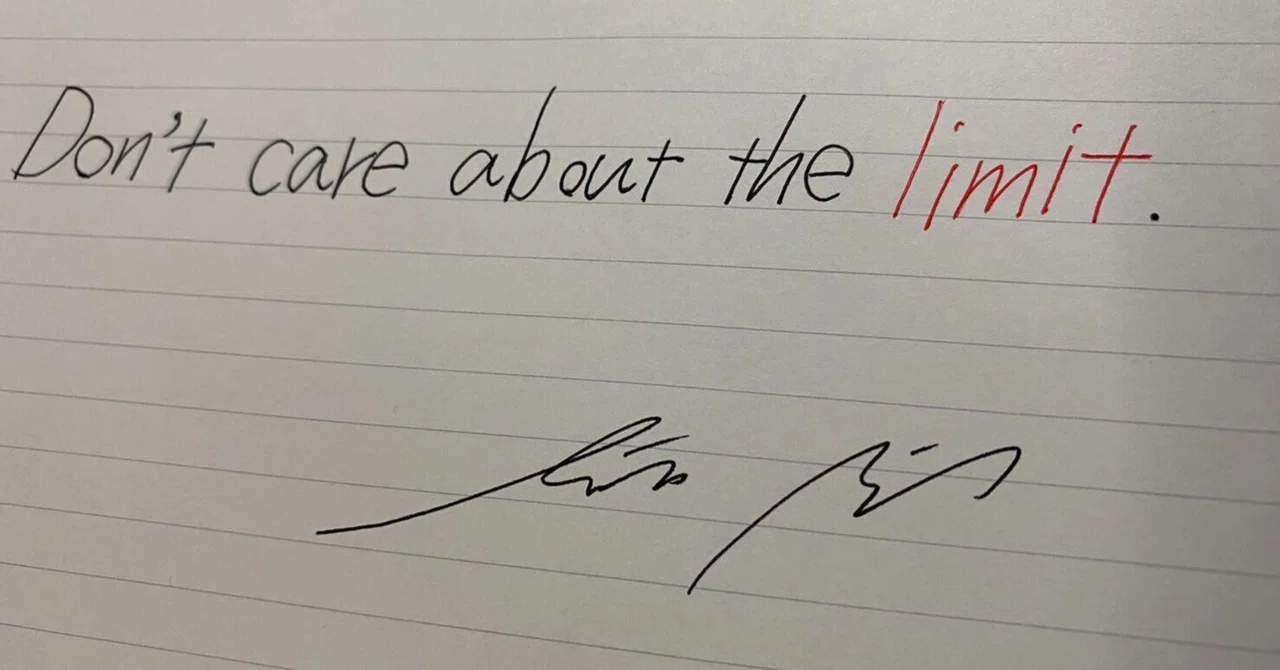 Don't care about the limit.